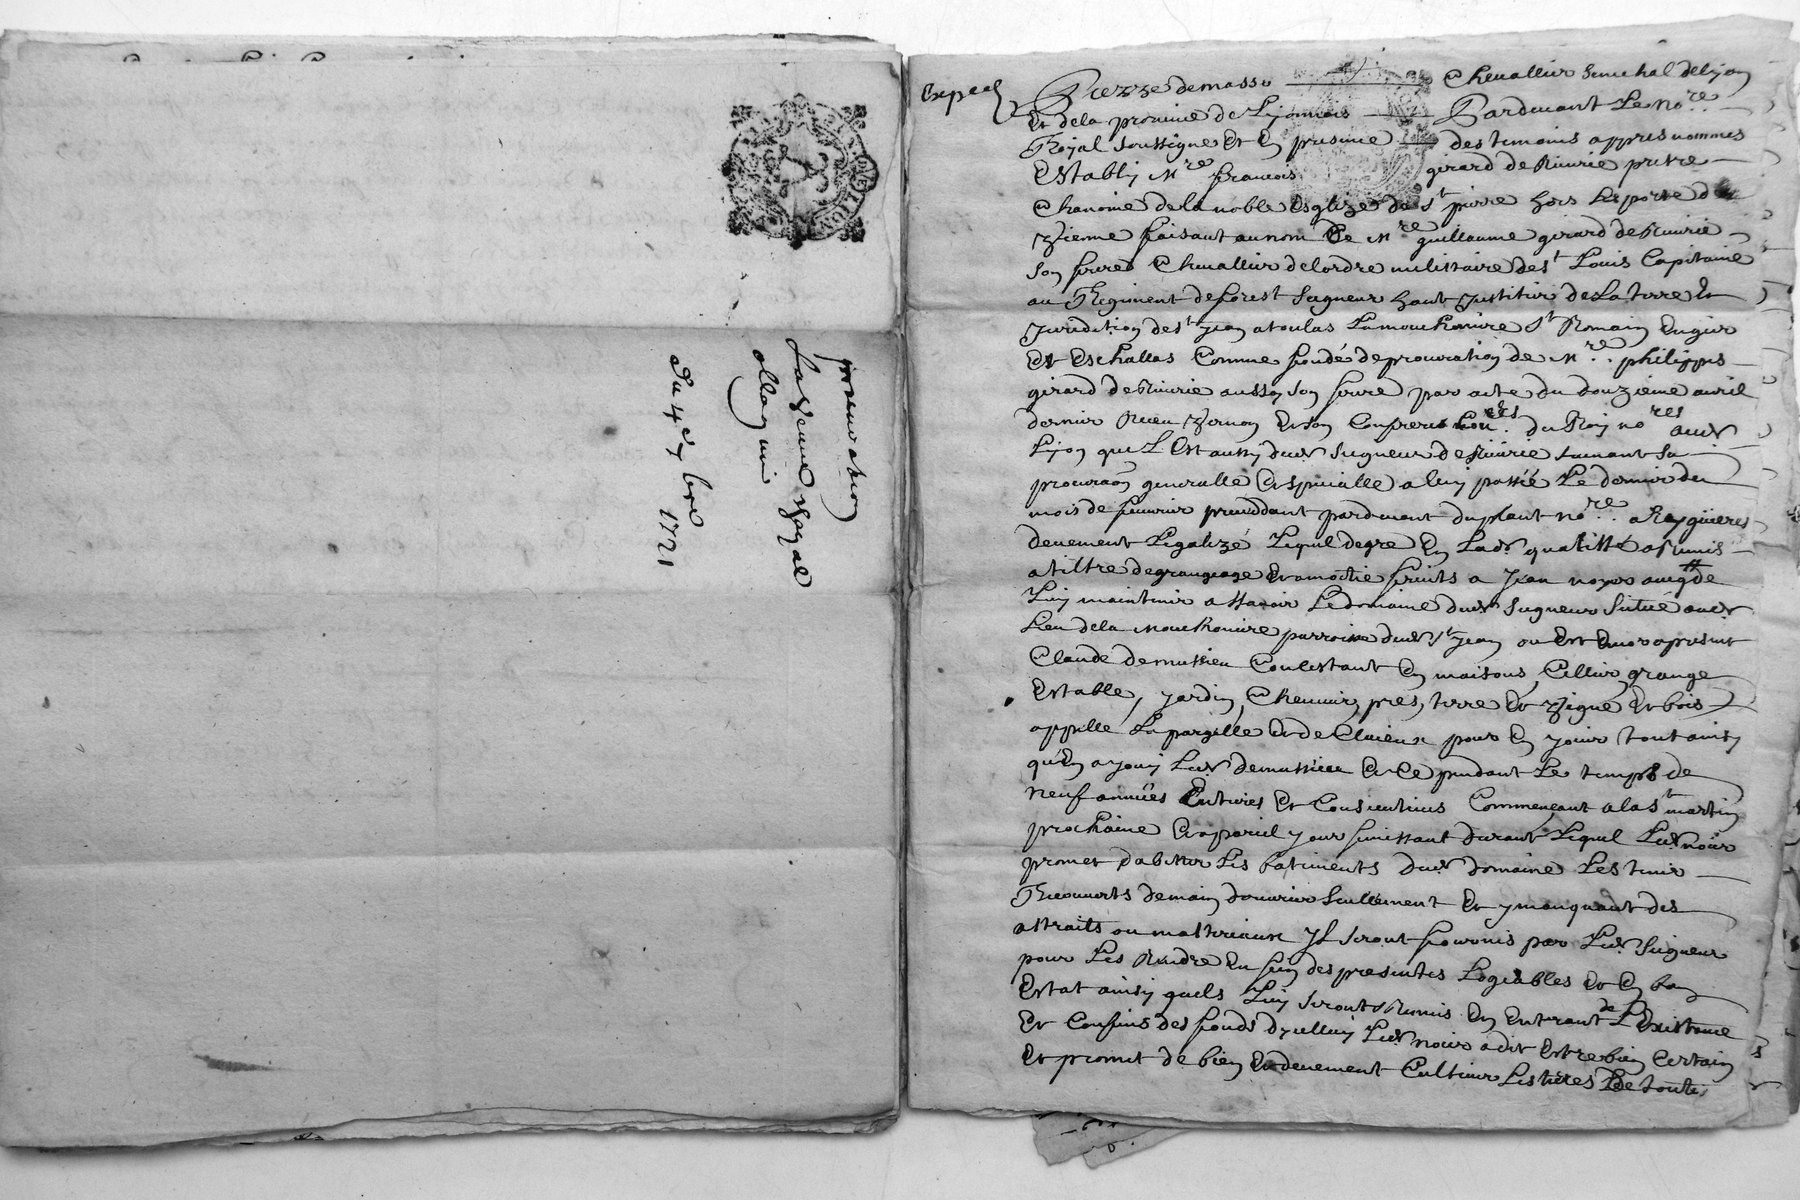 procuration
La veuve Bazal
allaqui
du 4e 7bre 1721
Exped
Pierre de masso Chevallier Senechal de Lyon
Et dela province de Lyonnois Pardevant Le nore
Royal soussigne Et En presence des temoins appres nommes
Establi Mre francois girard de Riverie pretre
Chanoine de la noble Esglize de st pierre hors Les porte de
Vienne faisant au nom De Mre guillaume girard de Riverie
son frere Chevallier de lordre militaire de st Louis Capitaine
au Regiment de forest seigneur haut Justitier de La terre Et
Juridiction de st Jean a toulas La mouchonniere st Romain En gier
Et Eschallas Comme fondé de procuration de Mre philippes
girard de Riverie aussy son frere par acte du douzieme avril
dernier Receu Vernon Et son Confrere Coners du Roy nores audt
Lyon que L Est aussy dudt seigneur de Riverie suivant sa
procuraon generalle Et specialle a luy passée Le dernier du
mois de fevrier precedant pardevant duplant nore a Rayguieres
deuement Legalizé Lequel de gre En Ladt qualitté a remis
a tiltre de grangeage Et a moitie fruits a Jean noyer avec de
Luy maintenir a stavoir Le domaine dudt seigneur situé audt
Lieu dela Mouchonniere parroisse dudt st Jean ou Est Encor a present
Claude demussieu Consistant En maisons, Cellier, grange
Estable, Jardin, Chenevier, pres, terre Et Vigne Et bois
appellé La pargille Et de Clavieux pour En Jouir tout ainsy
qu'En a Jouy Ledt demussieu Et Ce pendant Le temps de
neuf années Entieres Et Consecutives Commençant a la st martin
prochaine Et a pareil Jour finissant durant Lequel Ledt noir
promet d'abitter Les batiments dudt domaine Les tenir
Recouverts de main d'ouvrier seullement Et y manquant des
attraits ou materiaux Jl seront fournis par Ledt seigneur
pour Les Rendre En fin des presentes Logeables Et En bon
Estat ainsy quels Luy seront Remis En Entrant de L'Existance
Et Confins des fonds d'jcelluy Ledt noir a dit Estre bien Certain
Et promet de bien Et deuement Cultiver Les terres De toute